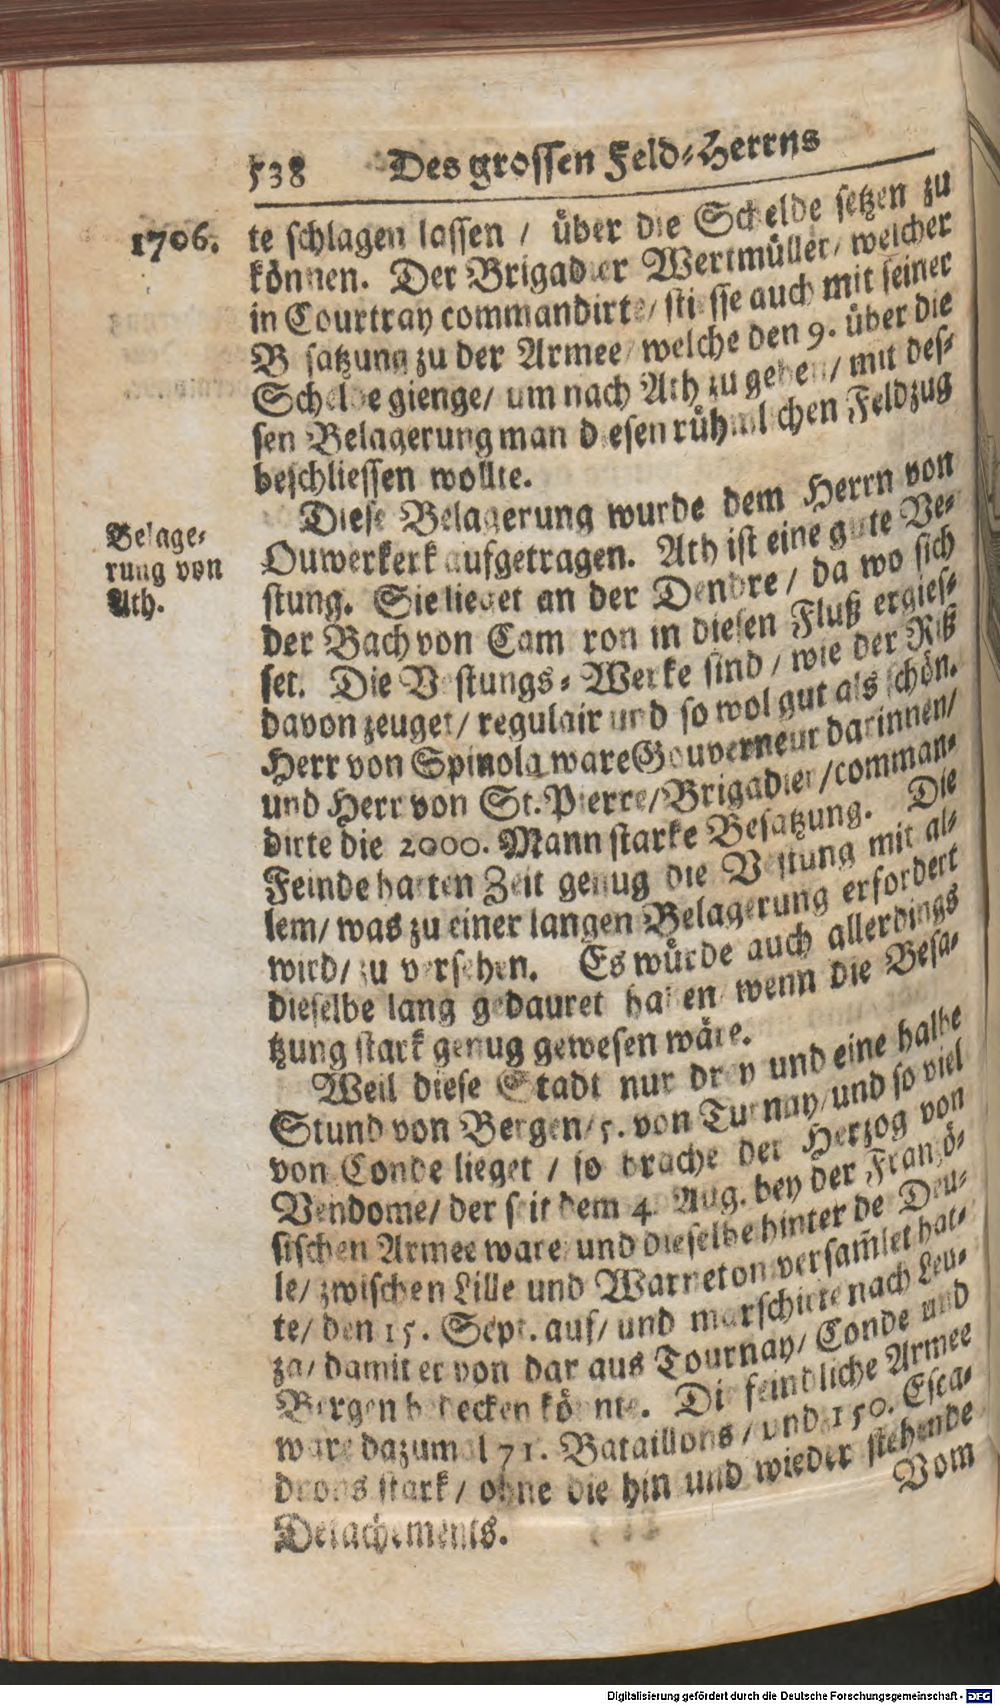 538 Des grossen Feld-Herrns
1706.
te schlagen lassen / über die Schelde setzen zu
können. Der Brigadier Wertmüller / welcher
in Courtray commandirte / stiesse auch mit seiner
Besatzung zu der Armee / welche den 9. über die
Schelde gienge / um nach Ath zu gehen / mit des-
sen Belagerung man diesen rühmlichen Feldzug
beschliessen wollte.
Belage-
rung von
Ath.
Diese Belagerung wurde dem Herrn von
Ouwerkerk aufgetragen. Ath ist eine gute Ve-
stung. Sie lieget an der Dendre / da wo sich
der Bach von Cam ron in diesen Fluß ergies-
set. Die Vestungs-Werke sind / wie der Riß
davon zeuget / regulair und so wol gut als schön.
Herr von Spinola ware Gouverneur darinnen /
und Herr von St. Pierre / Brigadier / comman-
dirte die 2000. Mann starke Besatzung. Die
Feinde hatten Zeit genug die Vestung mit al-
lem / was zu einer langen Belagerung erfordert
wird / zu versehen. Es würde auch allerdings
dieselbe lang gedauret haben / wenn die Besa-
tzung stark genug gewesen wäre.
Weil diese Stadt nur drey und eine halbe
Stund von Bergen / 5. von Turnay / und so viel
von Conde lieget / so brache der Herzog von
Vendome / der seit dem 4. Aug. bey der Franzö-
sischen Armee ware / und dieselbe hinter de Deu-
le / zwischen Lille und Warneton versam̃let hat-
te / den 15. Sept. auf / und marschirte nach Leu-
za / damit er von dar aus Tournay / Conde und
Bergen bedecken könnte. Die feindliche Armee
ware dazumal 71. Bataillons / und 150. Esca-
drons stark / ohne die hin und wieder stehende
Detachements.
Vom
Digitalisierung gefördert durch die Deutsche Forschungsgemeinschaft - DFG